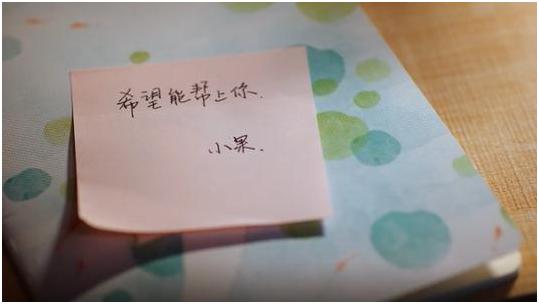 希望能帮上你.
小果.